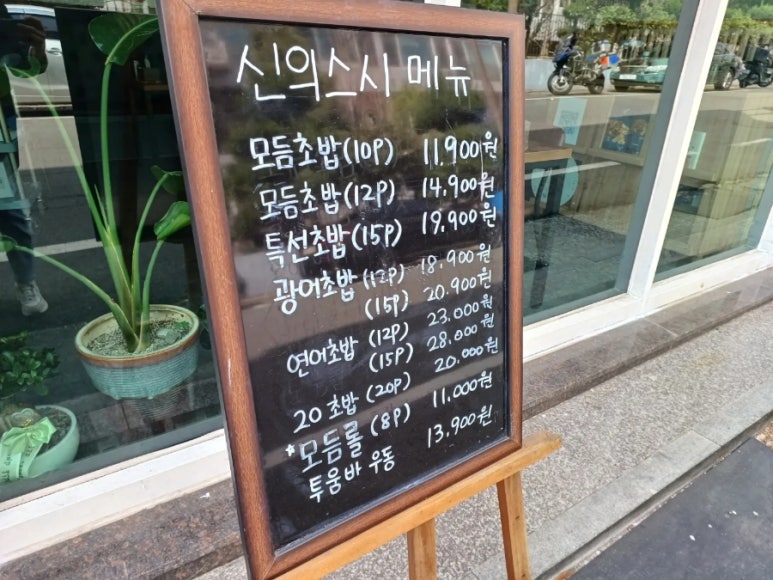 신의스시 메뉴
모듬초밥(10P) 11.900원
모듬초밥(12P) 14.900원
특선초밥(15P) 19.900원
광어초밥(12P) 18.900원
(15P) 20.900원
연어초밥(12P) 23.000원
(15P) 28.000원
20초밥(20P) 20.000원
*모듬롤(8P) 11.000원
투움바 우동 13.900원